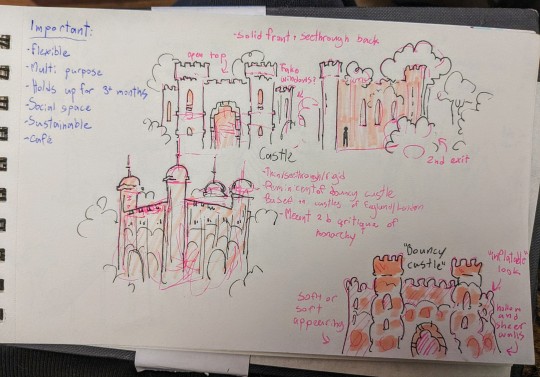 Important:
-flexible
-Multi purpose
-Holds up for 3+ months
-Social space
-Sustainable
-Café
-solid front + seethrough back
open top
Fake
windows?
2nd exit
Castle
-Translucent/rigid
-Reminiscent of bouncy castle
Based in castles of England/London
-Meant 2 b critique of
monarchy
"Bouncy
castle"
"inflatable"
look
soft or
soft
appearing
and
sheer
walls